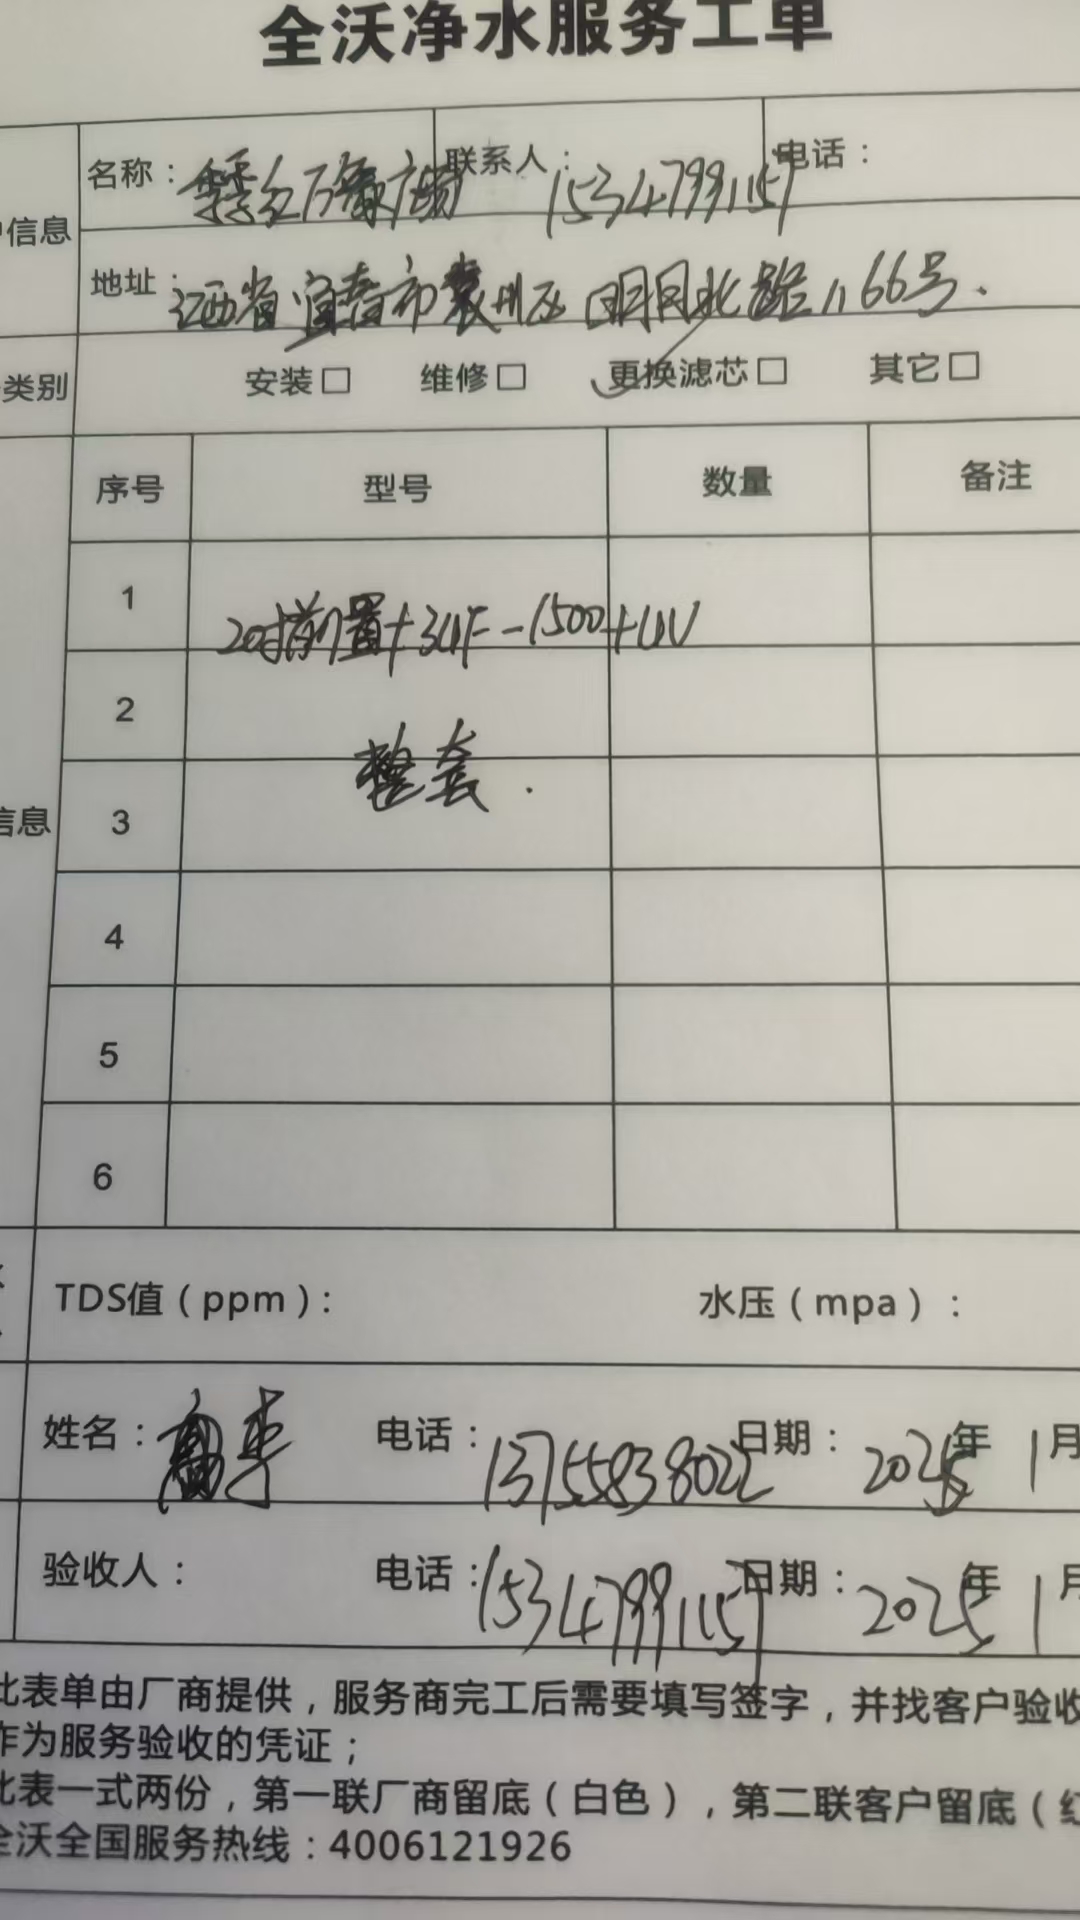 全沃净水服务工单
名称： 万象广场 联系人： 15347991157 电话：
信息
地址： 江西省宜春市袁州区明月北路1166号.
类别 安装□ 维修□ 更换滤芯□ 其它□
序号 型号 数量 备注
1 20寸前置+3UF-1500+UV
2
整套.
信息 3
4
5
6
TDS值（ppm）： 水压（mpa）：
姓名： 电话：13755838022 日期：2025年1月
验收人： 电话：15347991157 日期：2025年1月
此表单由厂商提供，服务商完工后需要填写签字，并找客户验收
作为服务验收的凭证；
此表一式两份，第一联厂商留底（白色），第二联客户留底（红
全沃全国服务热线：4006121926